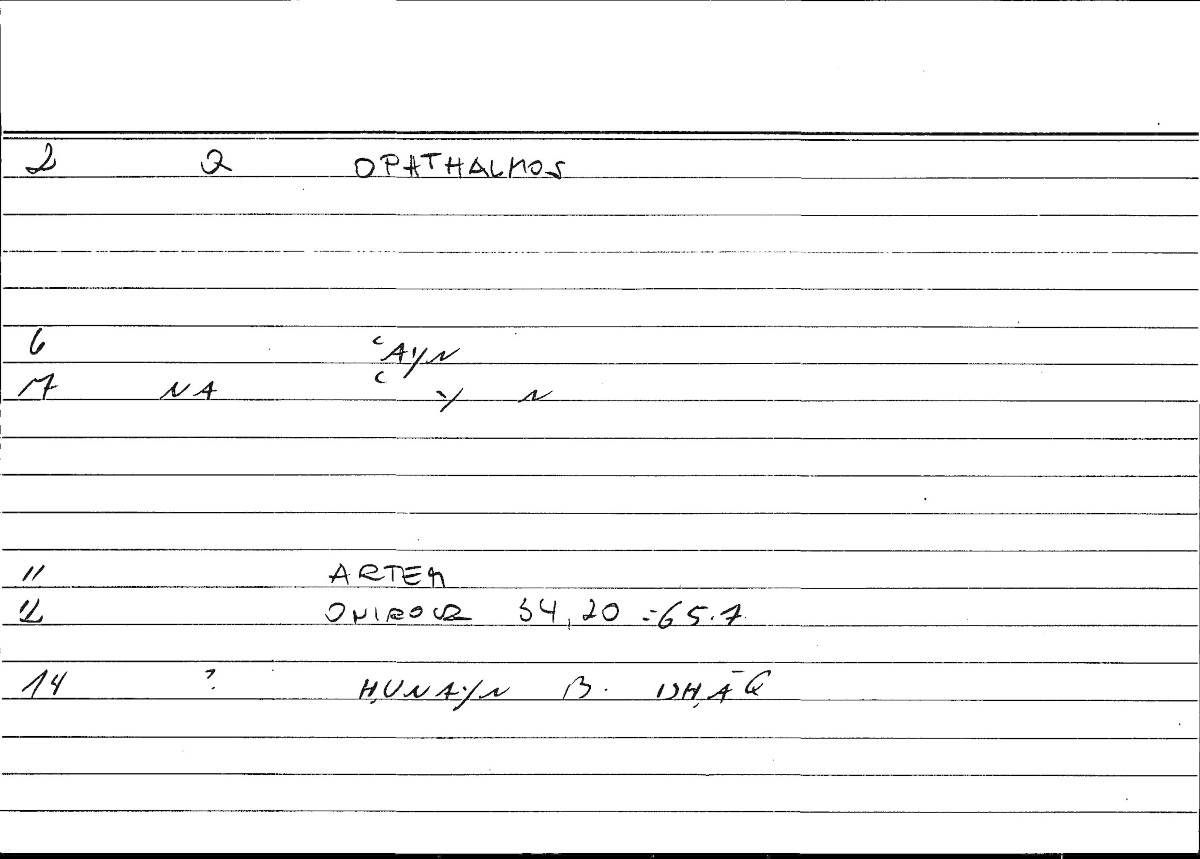 2 2 OPHTHALMOS
6 ʿAYN
17 NA ʿ Y N
11 ARTEM
12 ONIROCR 54,20 = 65.7
14 ? ḤUNAYN B. ISḤĀQ